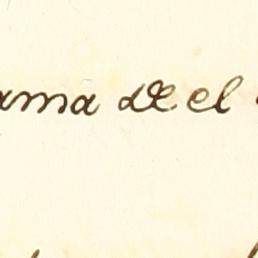 ama de el